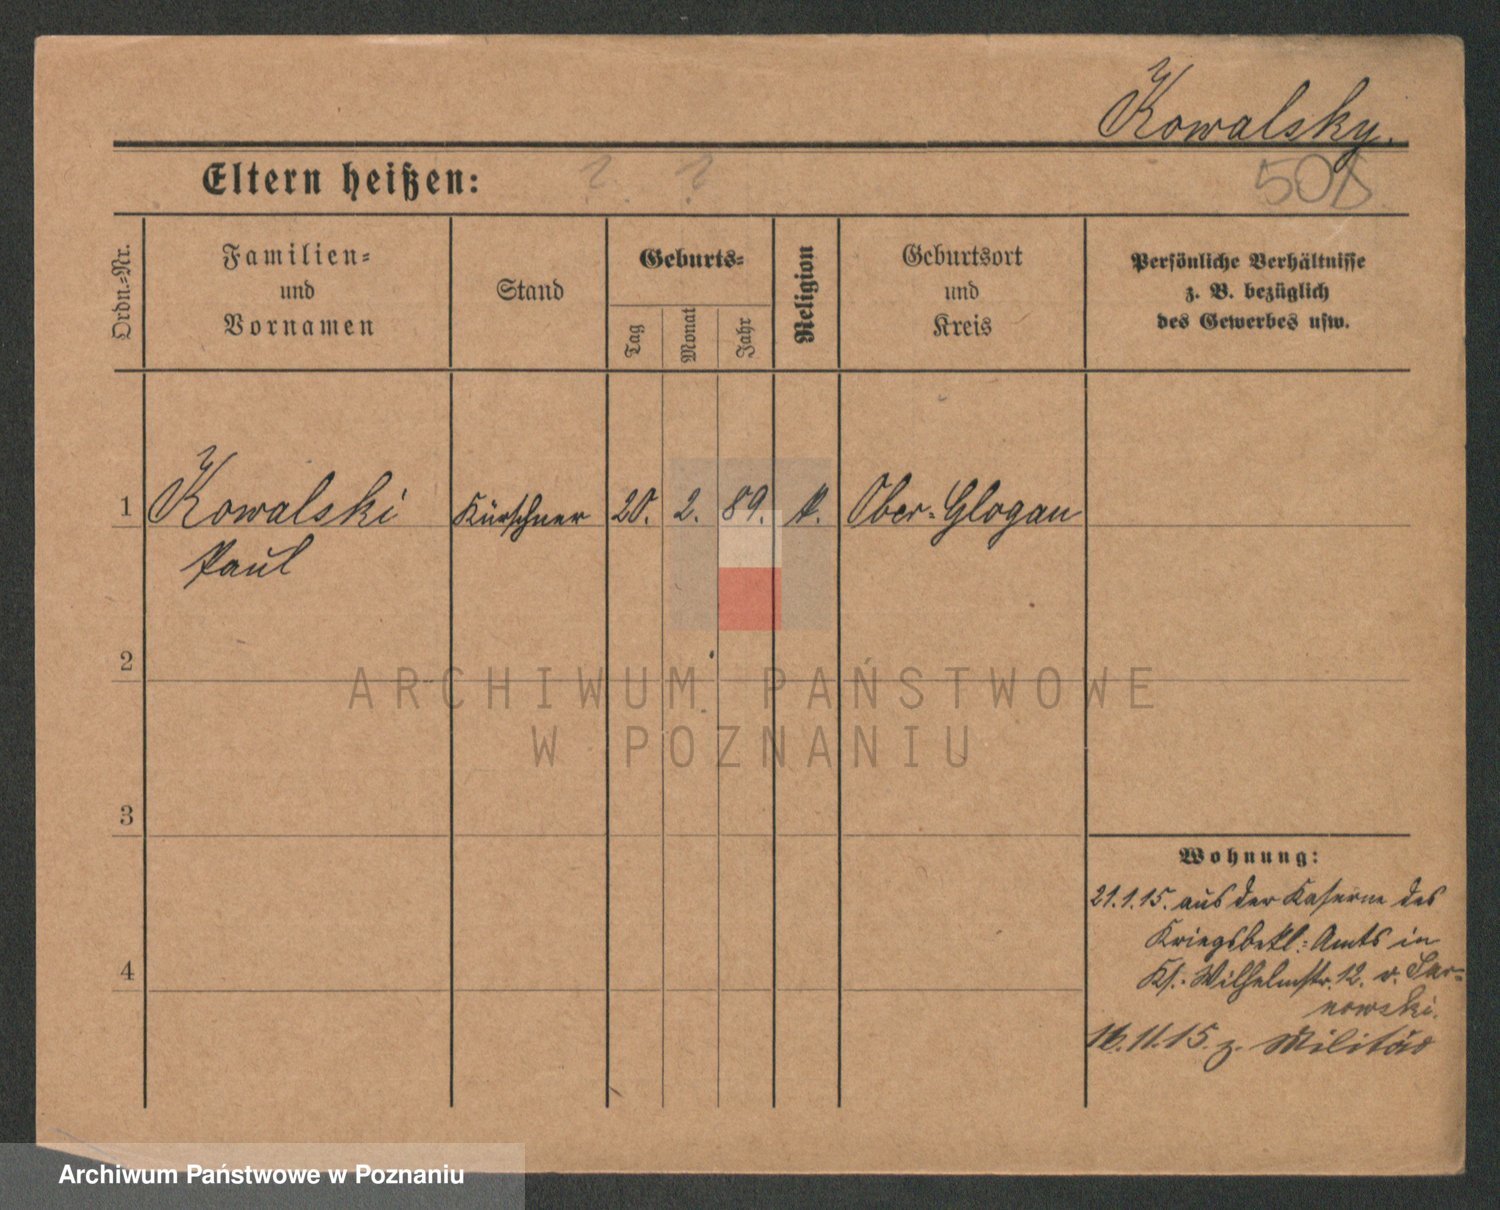 Kowalsky.
Eltern heißen: ? ?
508
Ordn.-Nr.
Familien-
und
Vornamen
Stand
Geburts-
Tag
Monat
Jahr
Religion
Geburtsort
und
Kreis
Persönliche Verhältnisse
z. B. bezüglich
des Gewerbes usw.
1 Kowalski Kürschner 20. 2. 89. k. Ober-Glogau
Paul
2
ARCHIWUM PAŃSTWOWE
W POZNANIU
3
Wohnung:
21.1.15. aus der Kaserne des
Kriegsbekl: Amts in
Kl. Wilhelmstr. 12. v. Sar-
nowski.
4
16.11.15. z. Militär
Archiwum Państwowe w Poznaniu